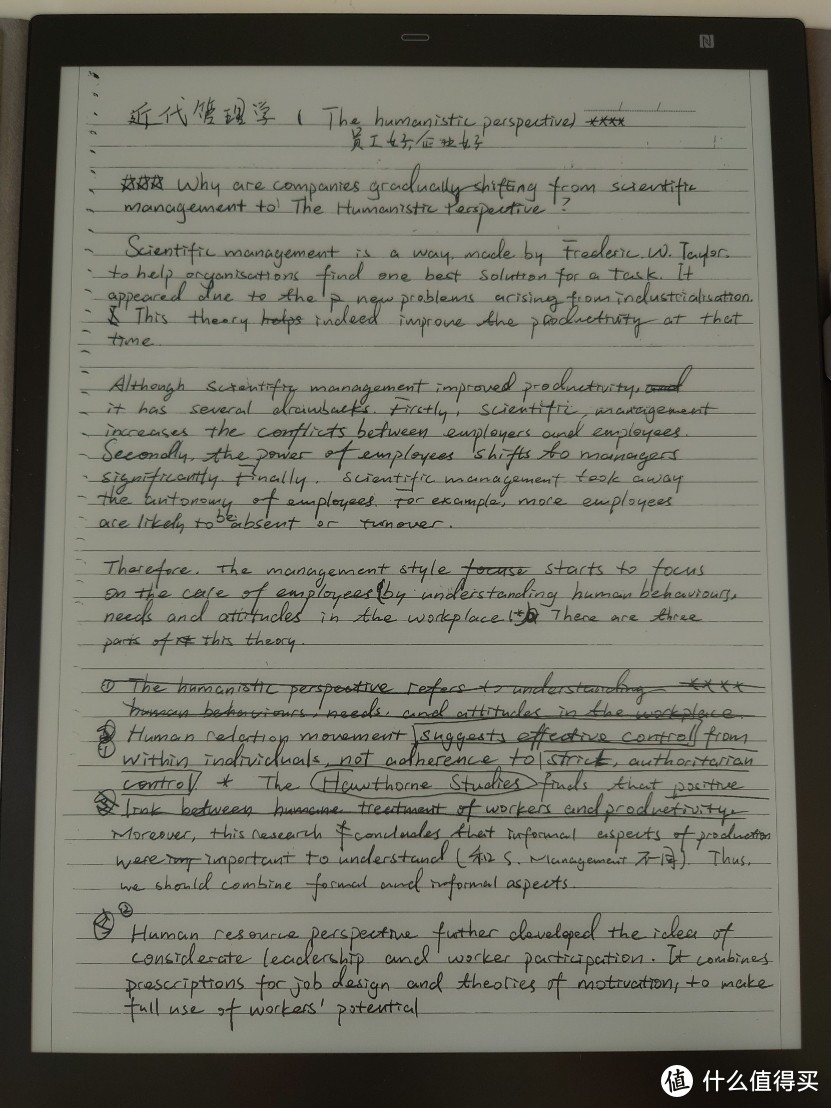 近代管理学 ( The humanistic perspective) ****
员工好,企业好
*** Why are companies gradually shifting from scientific
management to The Humanistic Perspective ?
Scientific management is a way made by Frederic. W. Taylor.
to help organisations find one best solution for a task. It
appeared due to the p new problems arising from industrialisation.
This theory helps indeed improve the productivity at that
time.
Although scientific management improved productivity, and
it has several drawbacks. Firstly, scientific management
increases the conflicts between employers and employees.
Secondly, the power of employees shifts to managers
significantly. Finally. scientific management took away
the autonomy of employees. For example, more employees
are likely to be absent or turnover.
Therefore. The management style focuse starts to focus
on the care of employees (by understanding human behaviours,
needs and attitudes in the workplace (*) There are three
parts of this theory.
① The humanistic perspective refers to understanding ****
human behaviours, needs, and attitudes in the workplace.
① Human relation movement suggests effective control from
within individuals, not adherence to strict, authoritarian
control. * The Hawthorne Studies finds that positive
link between humane treatment of workers and productivity.
Moreover, this research concludes that informal aspects of production
were important to understand (和 S. Management 不同). Thus,
we should combine formal and informal aspects.
②
Human resource perspective further developed the idea of
considerate leadership and worker participation. It combines
prescriptions for job design and theories of motivation, to make
full use of workers' potential
值 什么值得买